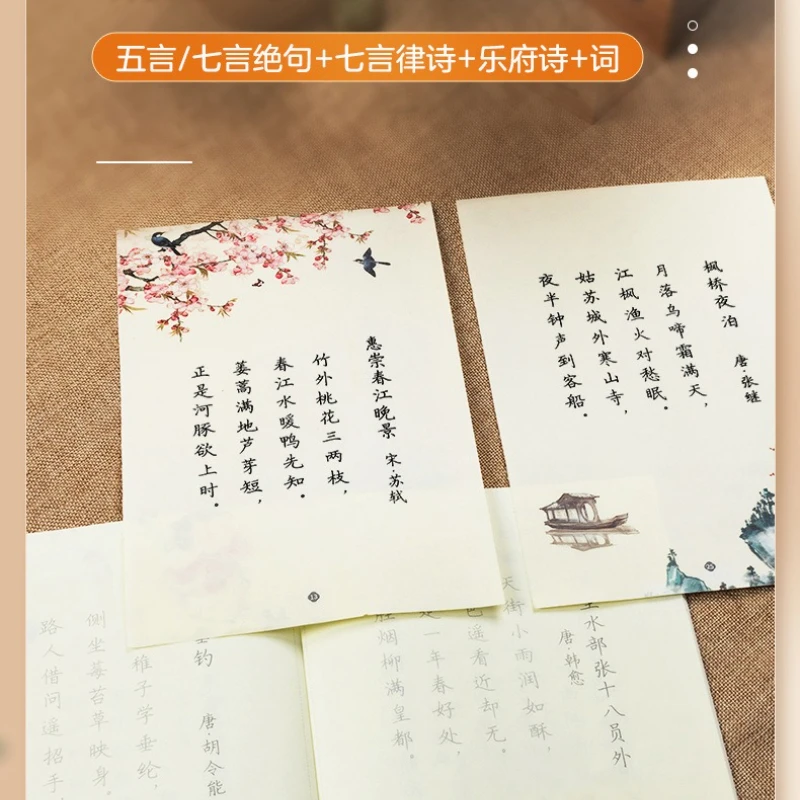 五言/七言绝句+七言律诗+乐府诗+词
枫桥夜泊
唐·张继
月落乌啼霜满天，
江枫渔火对愁眠。
姑苏城外寒山寺，
夜半钟声到客船。
25
惠崇春江晚景
宋·苏轼
竹外桃花三两枝，
春江水暖鸭先知。
蒌蒿满地芦芽短，
正是河豚欲上时。
13
水部张十八员外
唐·韩愈
天街小雨润如酥，
色遥看近却无。
是一年春好处，
烟柳满皇都。
钓
唐·胡令能
稚子学垂纶，
侧坐莓苔草映身。
路人借问遥招手